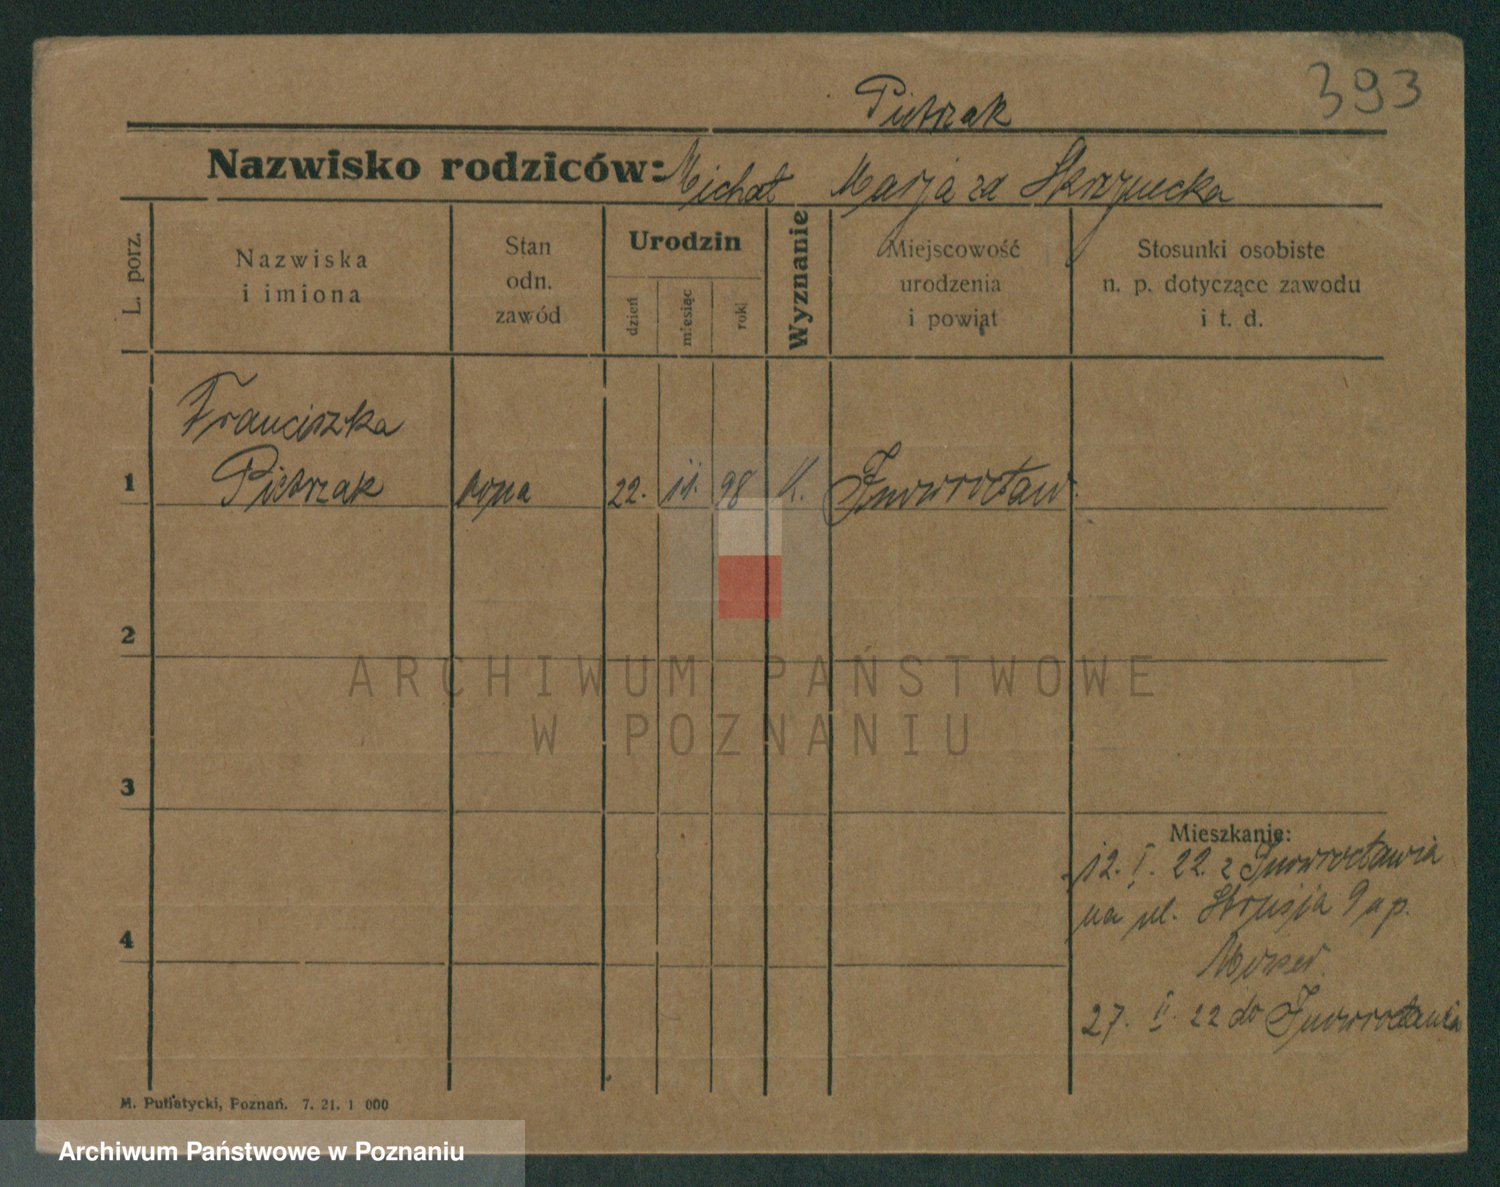 393
Pietrzak
Nazwisko rodziców: Michał Marja za Skrzypecka
L. porz.
Nazwiska
i imiona
Stan
odn.
zawód
Urodzin
dzień
miesiąc
rok
Wyznanie
Miejscowość
urodzenia
i powiat
Stosunki osobiste
n. p. dotyczące zawodu
i t. d.
Franciszka
1 Pietrzak 22. 11. 98 K. Inowrocław.
2
3
4
Mieszkanie:
12. I. 22. z Inowrocławia
na ul. Strusia 9 a p.
27. II. 22 do Inowrocławia
M. Putiatycki, Poznań. 7. 21. 1 000
ARCHIWUM PAŃSTWOWE
W POZNANIU
Archiwum Państwowe w Poznaniu